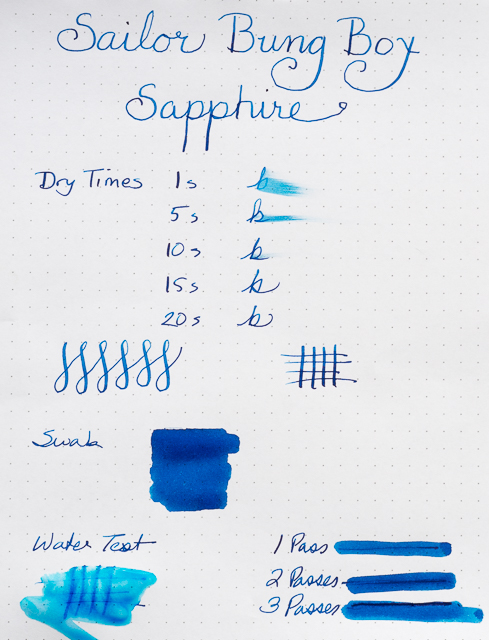 Sailor Bung Boy
Sapphire
Dry Times 1s b
5s b
10s b
15s b
20s b
Swab
Water Test
1 Pass
2 Passes
3 Passes